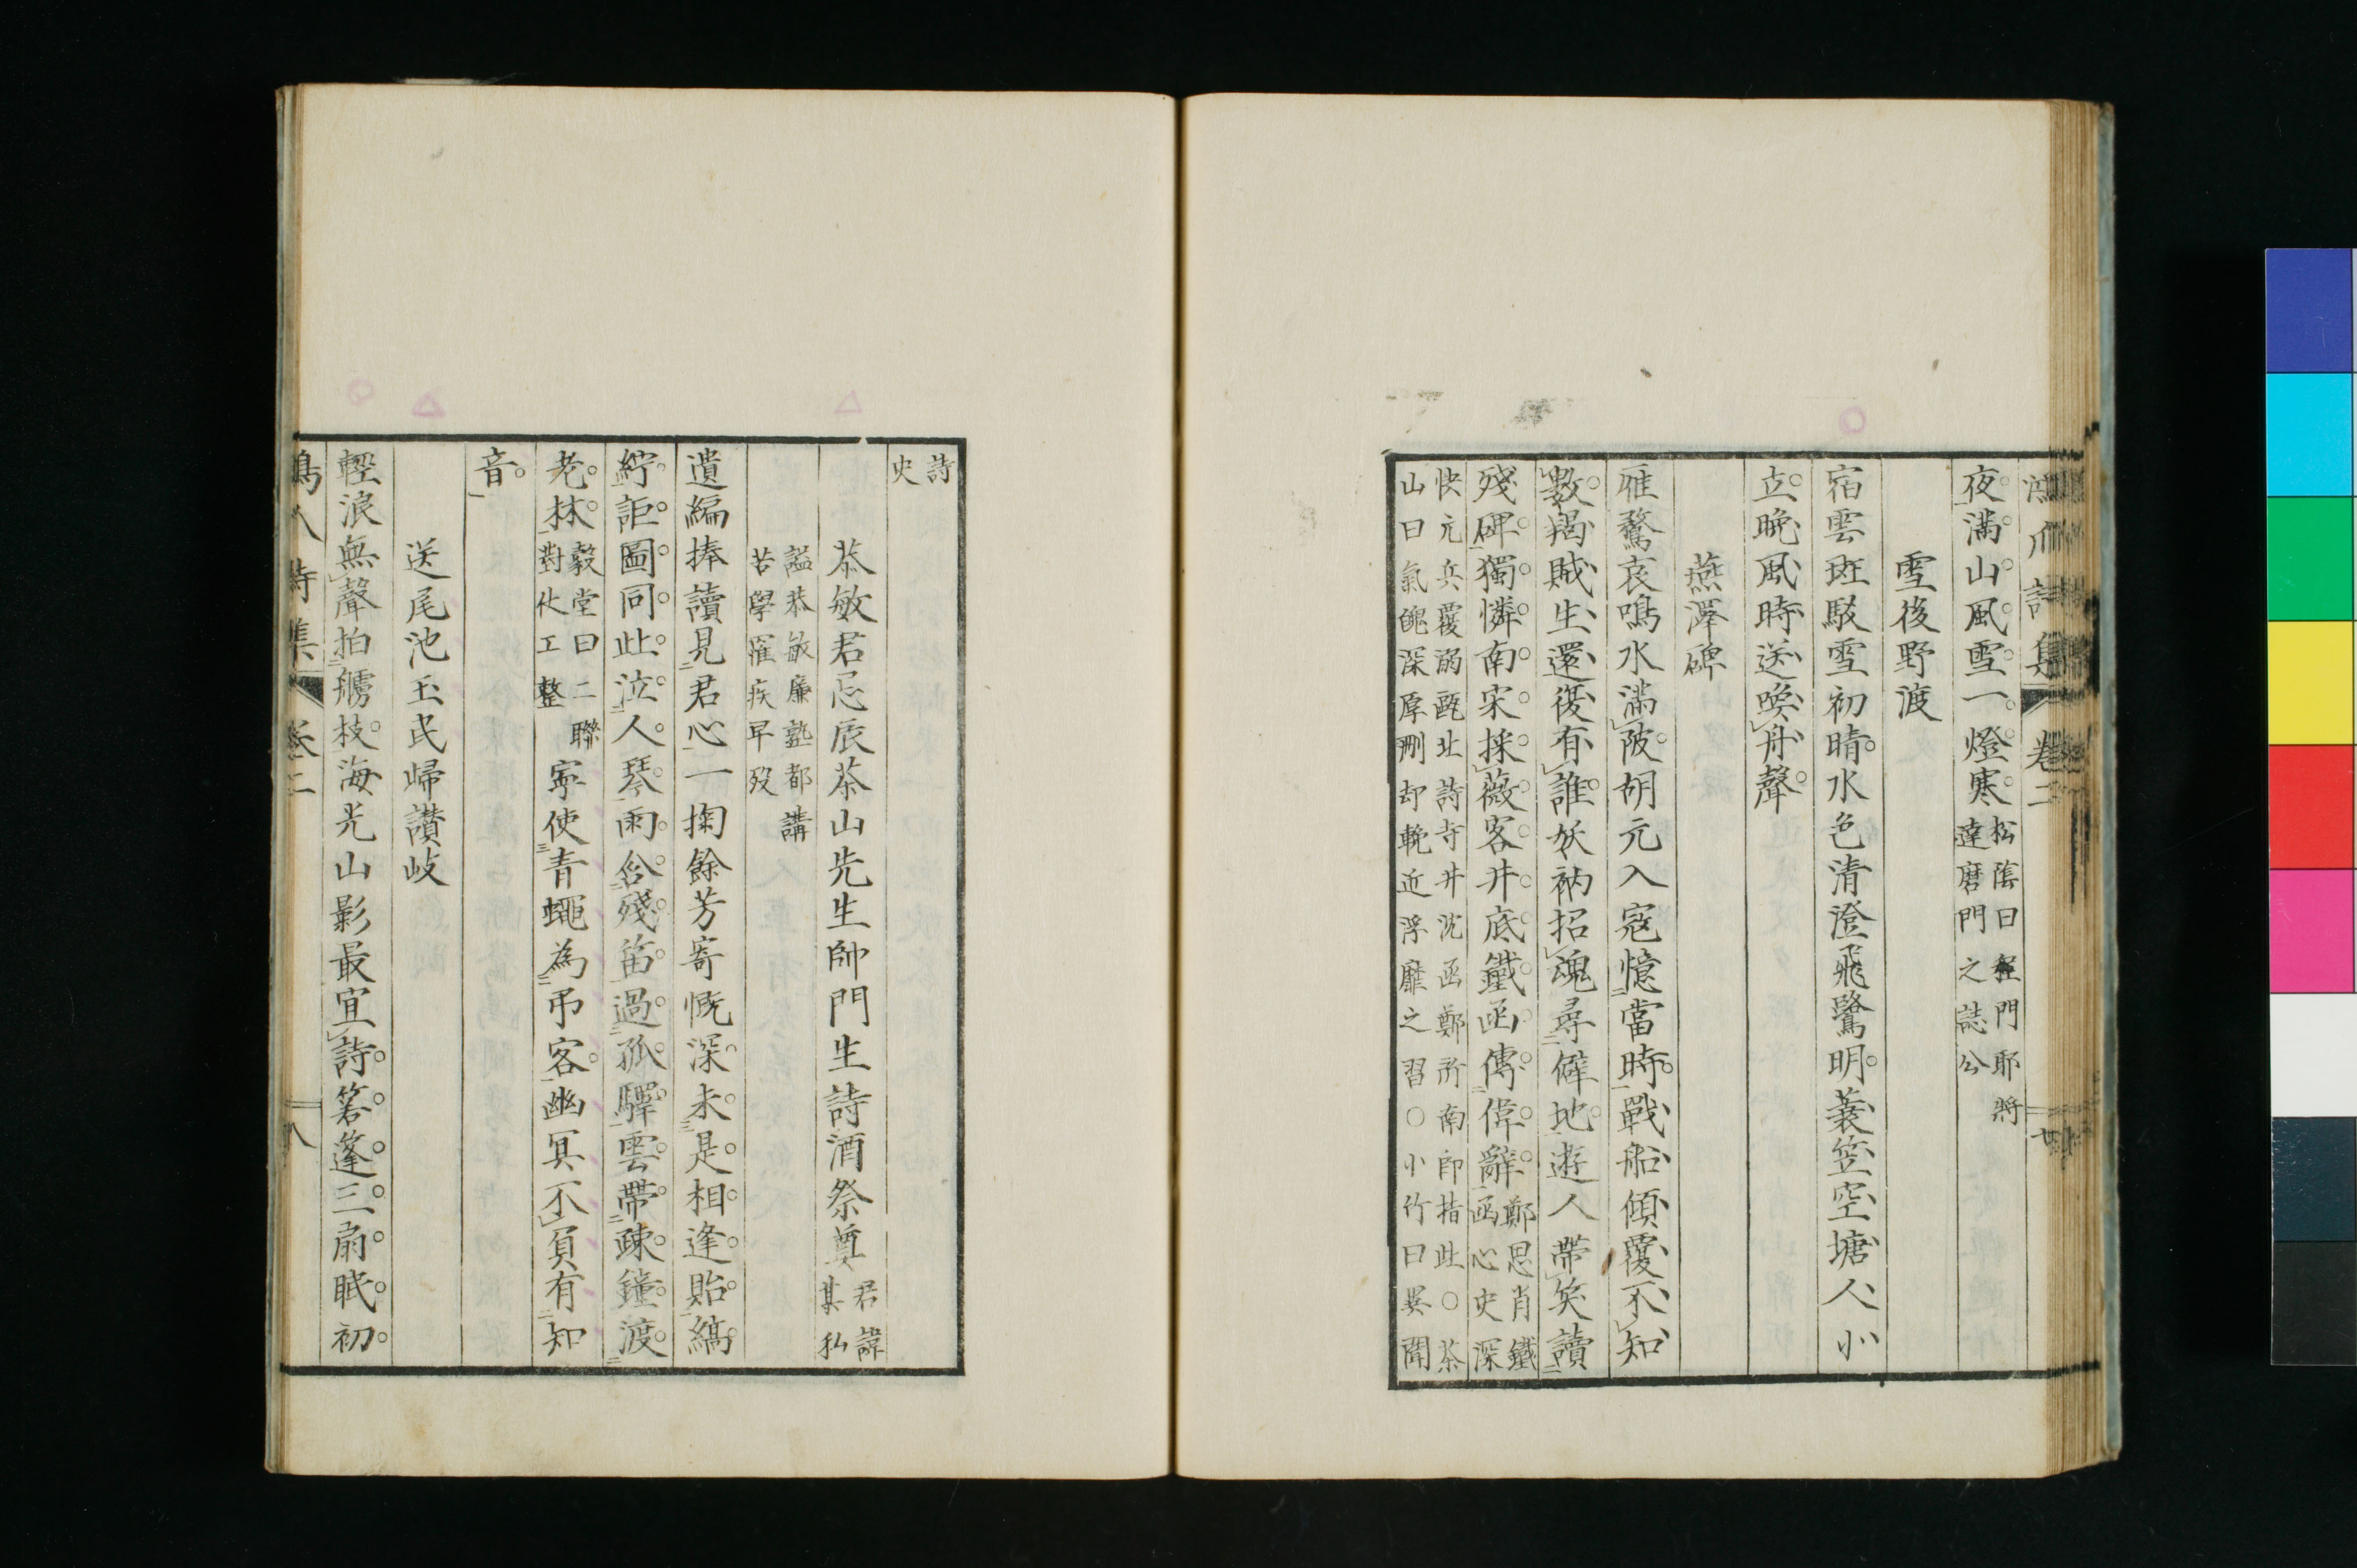 夜滿山風雪一燈寒 松蔭曰程門耶將達磨門之誌公
雪後野渡
宿雲斑駁雪初晴水色清澄飛鷺明蓑笠空塘人小
立晚風時送喚舟聲
燕澤碑
雁鶩哀鳴水滿陂胡元入寇憶當時戰船傾覆不知
數羯賊生還復有誰妖衲招魂尋僻地遊人帶笑讀
殘碑獨憐南宋採薇客井底鐵函傳偉辭 鄭思肖鐵函心史深
快元兵覆溺甌北詩寺井沈函鄭所南即指此○茶
山曰氣魄深厚刪却輓近浮靡之習○小竹曰異聞
詩史
恭敏君忌辰茶山先生帥門生詩酒祭奠 君諱某私
謚恭敏廉塾都講苦學罹疾早歿
遺編捧讀見君心一掬餘芳寄慨深未是相逢貽縞
紵詎圖同此泣人琴雨含殘笛過孤驛雲帶疎鐘渡
老林 毅堂曰二聯對仗工整 寧使青蠅為弔客幽冥不負有知
音
送尾池玉民歸讃岐
輕浪無聲拍艣枝海光山影最宜詩箬篷三扇眠初
詩集 卷二 八